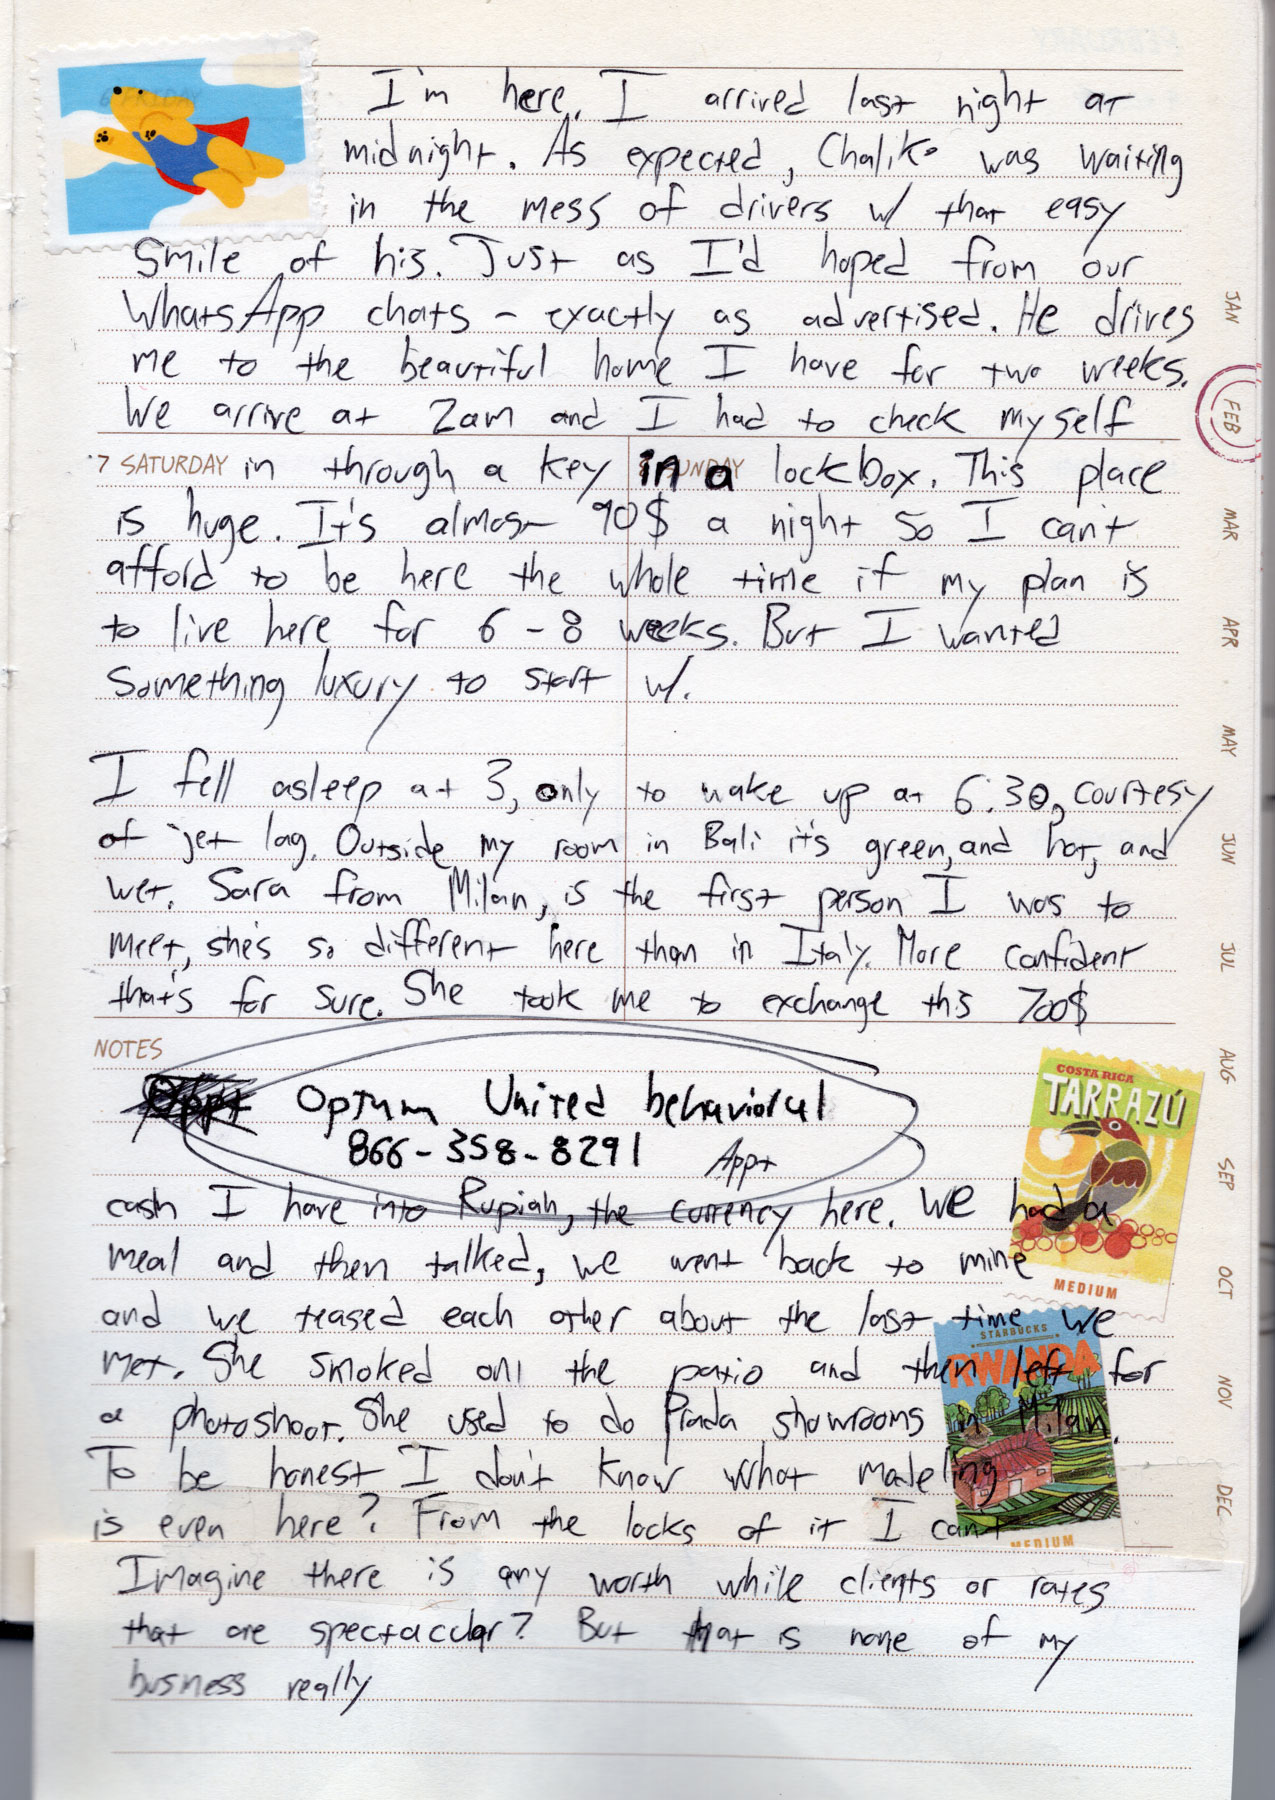 FEBRUARY
6 FRIDAY
I'm here. I arrived last night at
midnight. As expected, Chaliko was waiting
in the mess of drivers w/ that easy
smile of his. Just as I'd hoped from our
WhatsApp chats - exactly as advertised. He drives
me to the beautiful home I have for two weeks.
We arrive at 2am and I had to check myself
7 SATURDAY in through a key in a lockbox. This place
SUNDAY
is huge. It's almost 90$ a night so I can't
afford to be here the whole time if my plan is
to live here for 6 - 8 weeks. But I wanted
something luxury to start w/.
I fell asleep at 3, only to wake up at 6:30, courtesy
of jet lag. Outside my room in Bali it's green, and hot, and
wet. Sara from Milan, is the first person I was to
meet, she's so different here than in Italy. More confident
that's for sure. She took me to exchange this 700$
NOTES
Appt Optum United behavioral
866-358-8291 Appt
cash I have into Rupiah, the currency here. We had a
meal and then talked, we went back to mine
and we teased each other about the last time we
met. She smoked on the patio and then left for
a photoshoot. She used to do Prada showrooms in Milan.
To be honest I don't know what modeling
is even here? From the looks of it I can't
Imagine there is any worth while clients or rates
that are spectacular? But that is none of my
business really
COSTA RICA
TARRAZÚ
MEDIUM
STARBUCKS
RWANDA
MEDIUM
JAN
FEB
MAR
APR
MAY
JUN
JUL
AUG
SEP
OCT
NOV
DEC